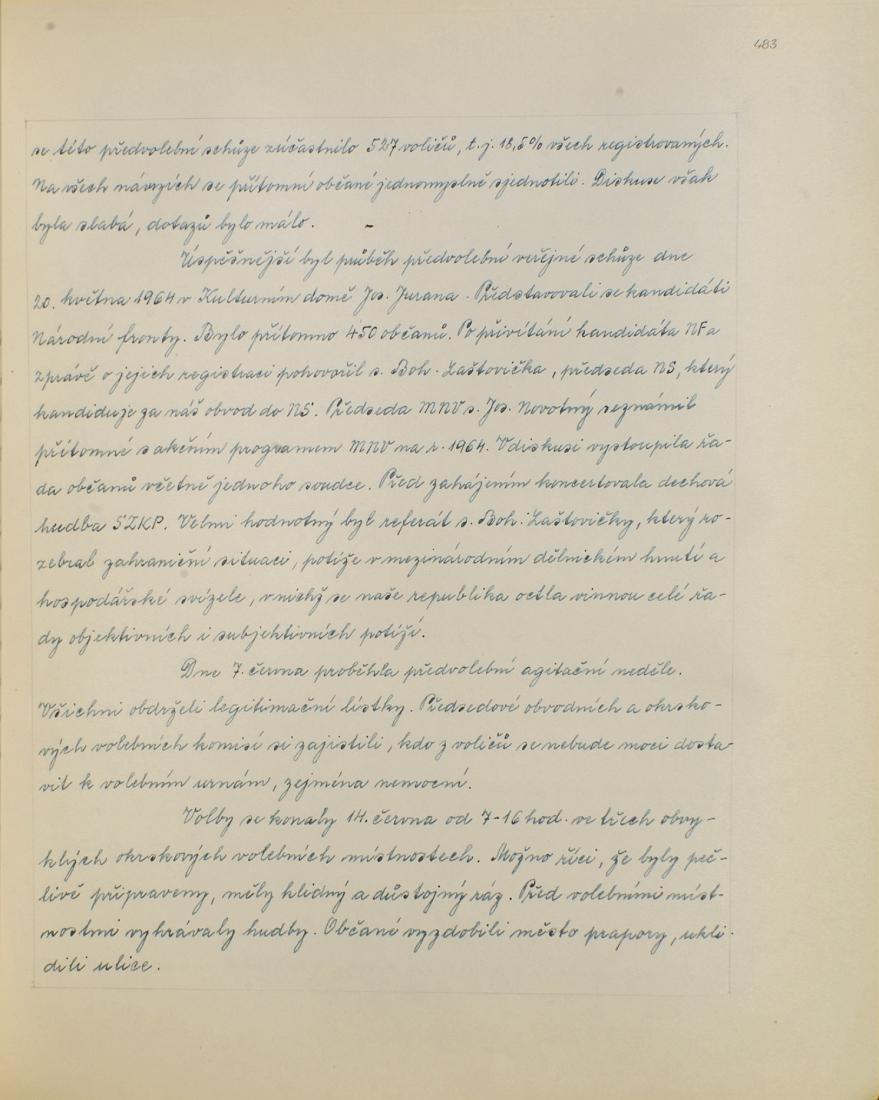 483
se této předvolební schůze zúčastnilo 527 voličů, t.j. 18,5% všech registrovaných.
Na všech návrzích se přítomní občané jednomyslně sjednotili. Diskuse však
byla slabá, dotazů bylo málo. -
Úspěšnější byl průběh předvolební veřejné schůze dne
20. května 1964 v Kulturním domě Jos. Jurana. Představovali se kandidáti
Národní fronty. Bylo přítomno 450 občanů. Po přivítání kandidáta NF a
zprávě o jejich registraci pohovořil s. Boh. Laštovička, předseda NS, který
kandiduje za náš obvod do NS. Předseda MNV s. Jos. Novotný seznámil
přítomné s akčním programem MNV na r. 1964. V diskusi vystoupila řa-
da občanů včetně jednoho soudce. Před zahájením koncertovala dechová
hudba SZKP. Velmi hodnotný byl referát s. Boh. Laštovičky, který ro-
zebral zahraniční situaci, potíže v mezinárodním dělnickém hnutí a
hospodářské svízele, v nichž se naše republika octla vinnou celé řa-
dy objektivních i subjektivních potíží.
Dne 7. června proběhla předvolební agitační neděle.
Všichni obdrželi legitimační lístky. Předsedové obvodních a okrsko-
vých volebních komisí si zajistili, kdo z voličů se nebude moci dosta-
vit k volebním urnám, zejména nemocní.
Volby se konaly 14. června od 7-16 hod. ve třech obvy-
klých okrskových volebních místnostech. Možno říci, že byly peč-
livě připraveny, měly klidný a důstojný ráz. Před volebními míst-
nostmi vyhrávaly hudby. Občané vyzdobili město prapory, ukli-
dili ulice.